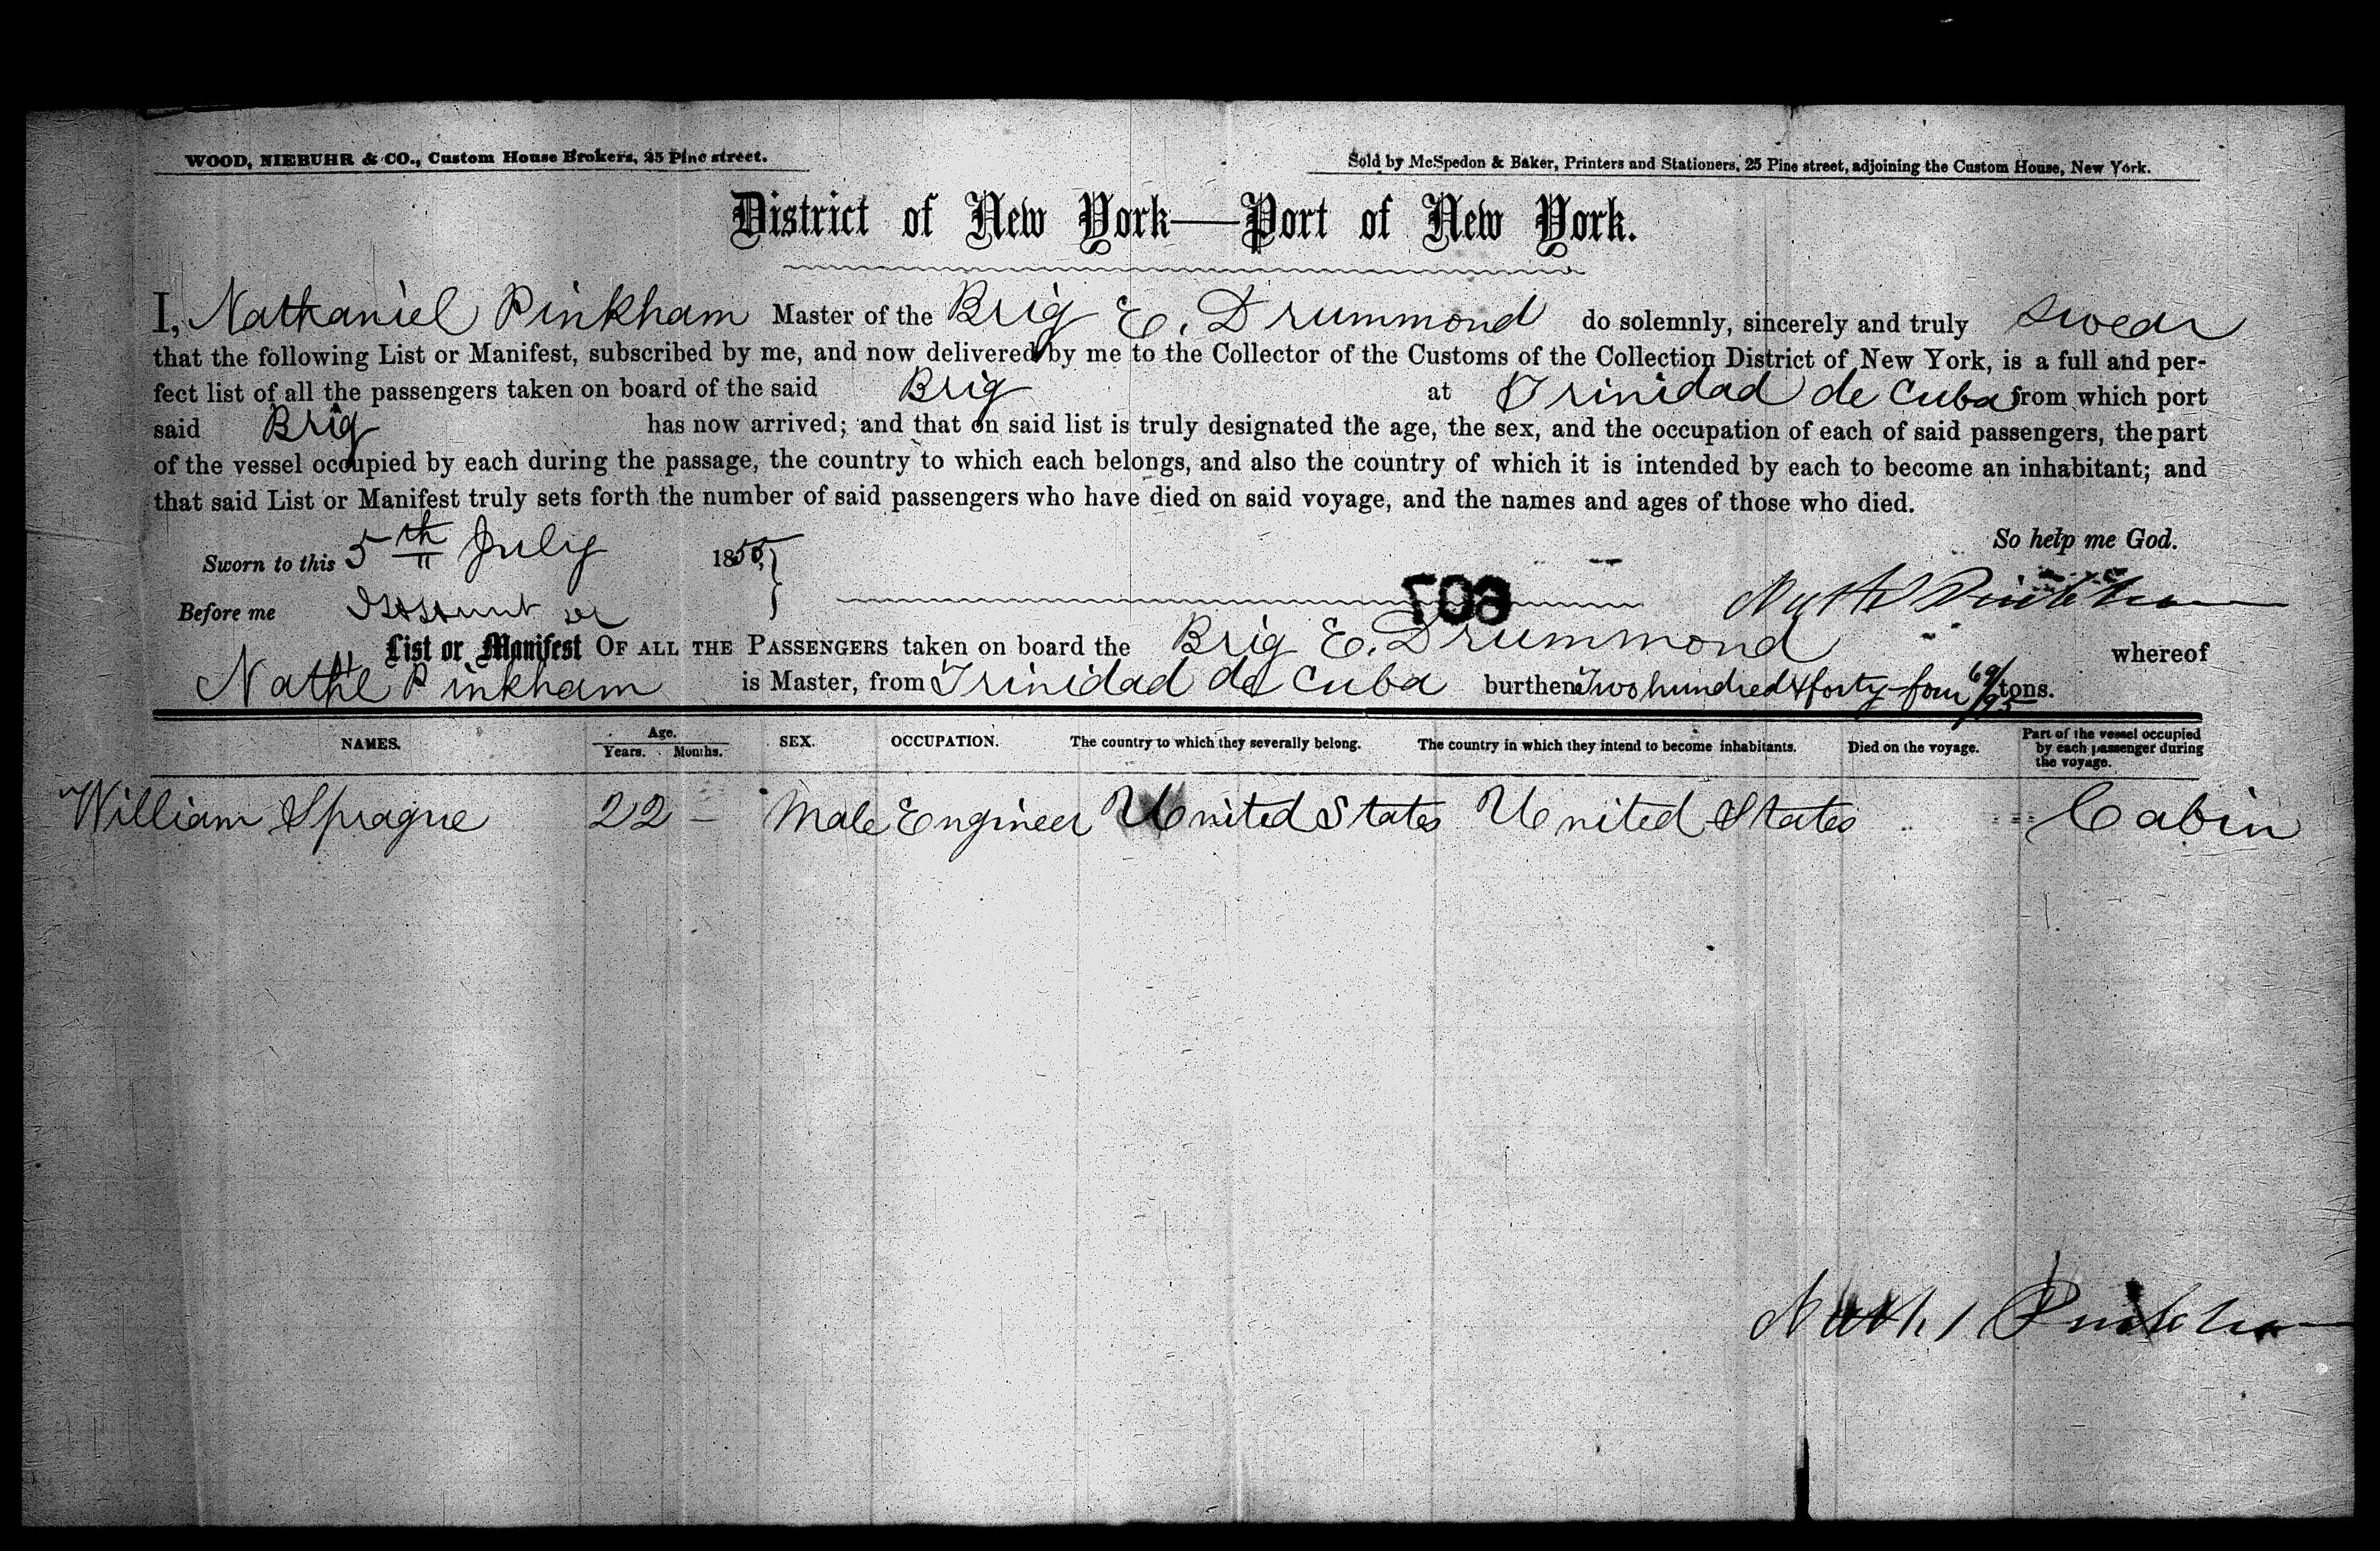 WOOD, NIEBUHR & CO., Custom House Brokers, 25 Pine street.
Sold by McSpedon & Baker, Printers and Stationers, 25 Pine street, adjoining the Custom House, New York.
District of New York—Port of New York.
I, Nathaniel Pinkham Master of the Brig E. Drummond do solemnly, sincerely and truly swear
that the following List or Manifest, subscribed by me, and now delivered by me to the Collector of the Customs of the Collection District of New York, is a full and per-
fect list of all the passengers taken on board of the said Brig at Trinidad de Cuba from which port
said Brig has now arrived; and that on said list is truly designated the age, the sex, and the occupation of each of said passengers, the part
of the vessel occupied by each during the passage, the country to which each belongs, and also the country of which it is intended by each to become an inhabitant; and
that said List or Manifest truly sets forth the number of said passengers who have died on said voyage, and the names and ages of those who died.
So help me God.
Sworn to this 5th July 1855,
Before me
607
Nathl Pinkham
List or Manifest OF ALL THE PASSENGERS taken on board the Brig E. Drummond whereof
Nathl Pinkham is Master, from Trinidad de Cuba burthen Two hundred & forty-four 69/95 tons.
NAMES. Age. Years. Months. SEX. OCCUPATION. The country to which they severally belong. The country in which they intend to become inhabitants. Died on the voyage. Part of the vessel occupied by each passenger during the voyage.
William Sprague 22 – Male Engineer United States United States Cabin
Nathl Pinkham